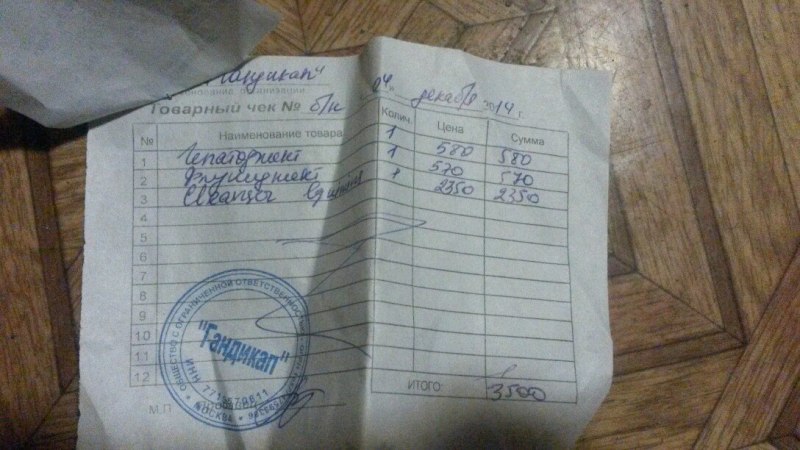 "Гандикап"
наименование организации
Товарный чек № б/н
24 декабря 2014 г.
№ Наименование товара Колич. Цена Сумма
1 Гепатоджект 1 580 580
2 1 570 570
3 1 2350 2350
4
5
6
7
8
9
10
11
12
ИТОГО: 3500
М.П
ОБЩЕСТВО С ОГРАНИЧЕННОЙ ОТВЕТСТВЕННОСТЬЮ
"Гандикап"
ИНН
МОСКВА